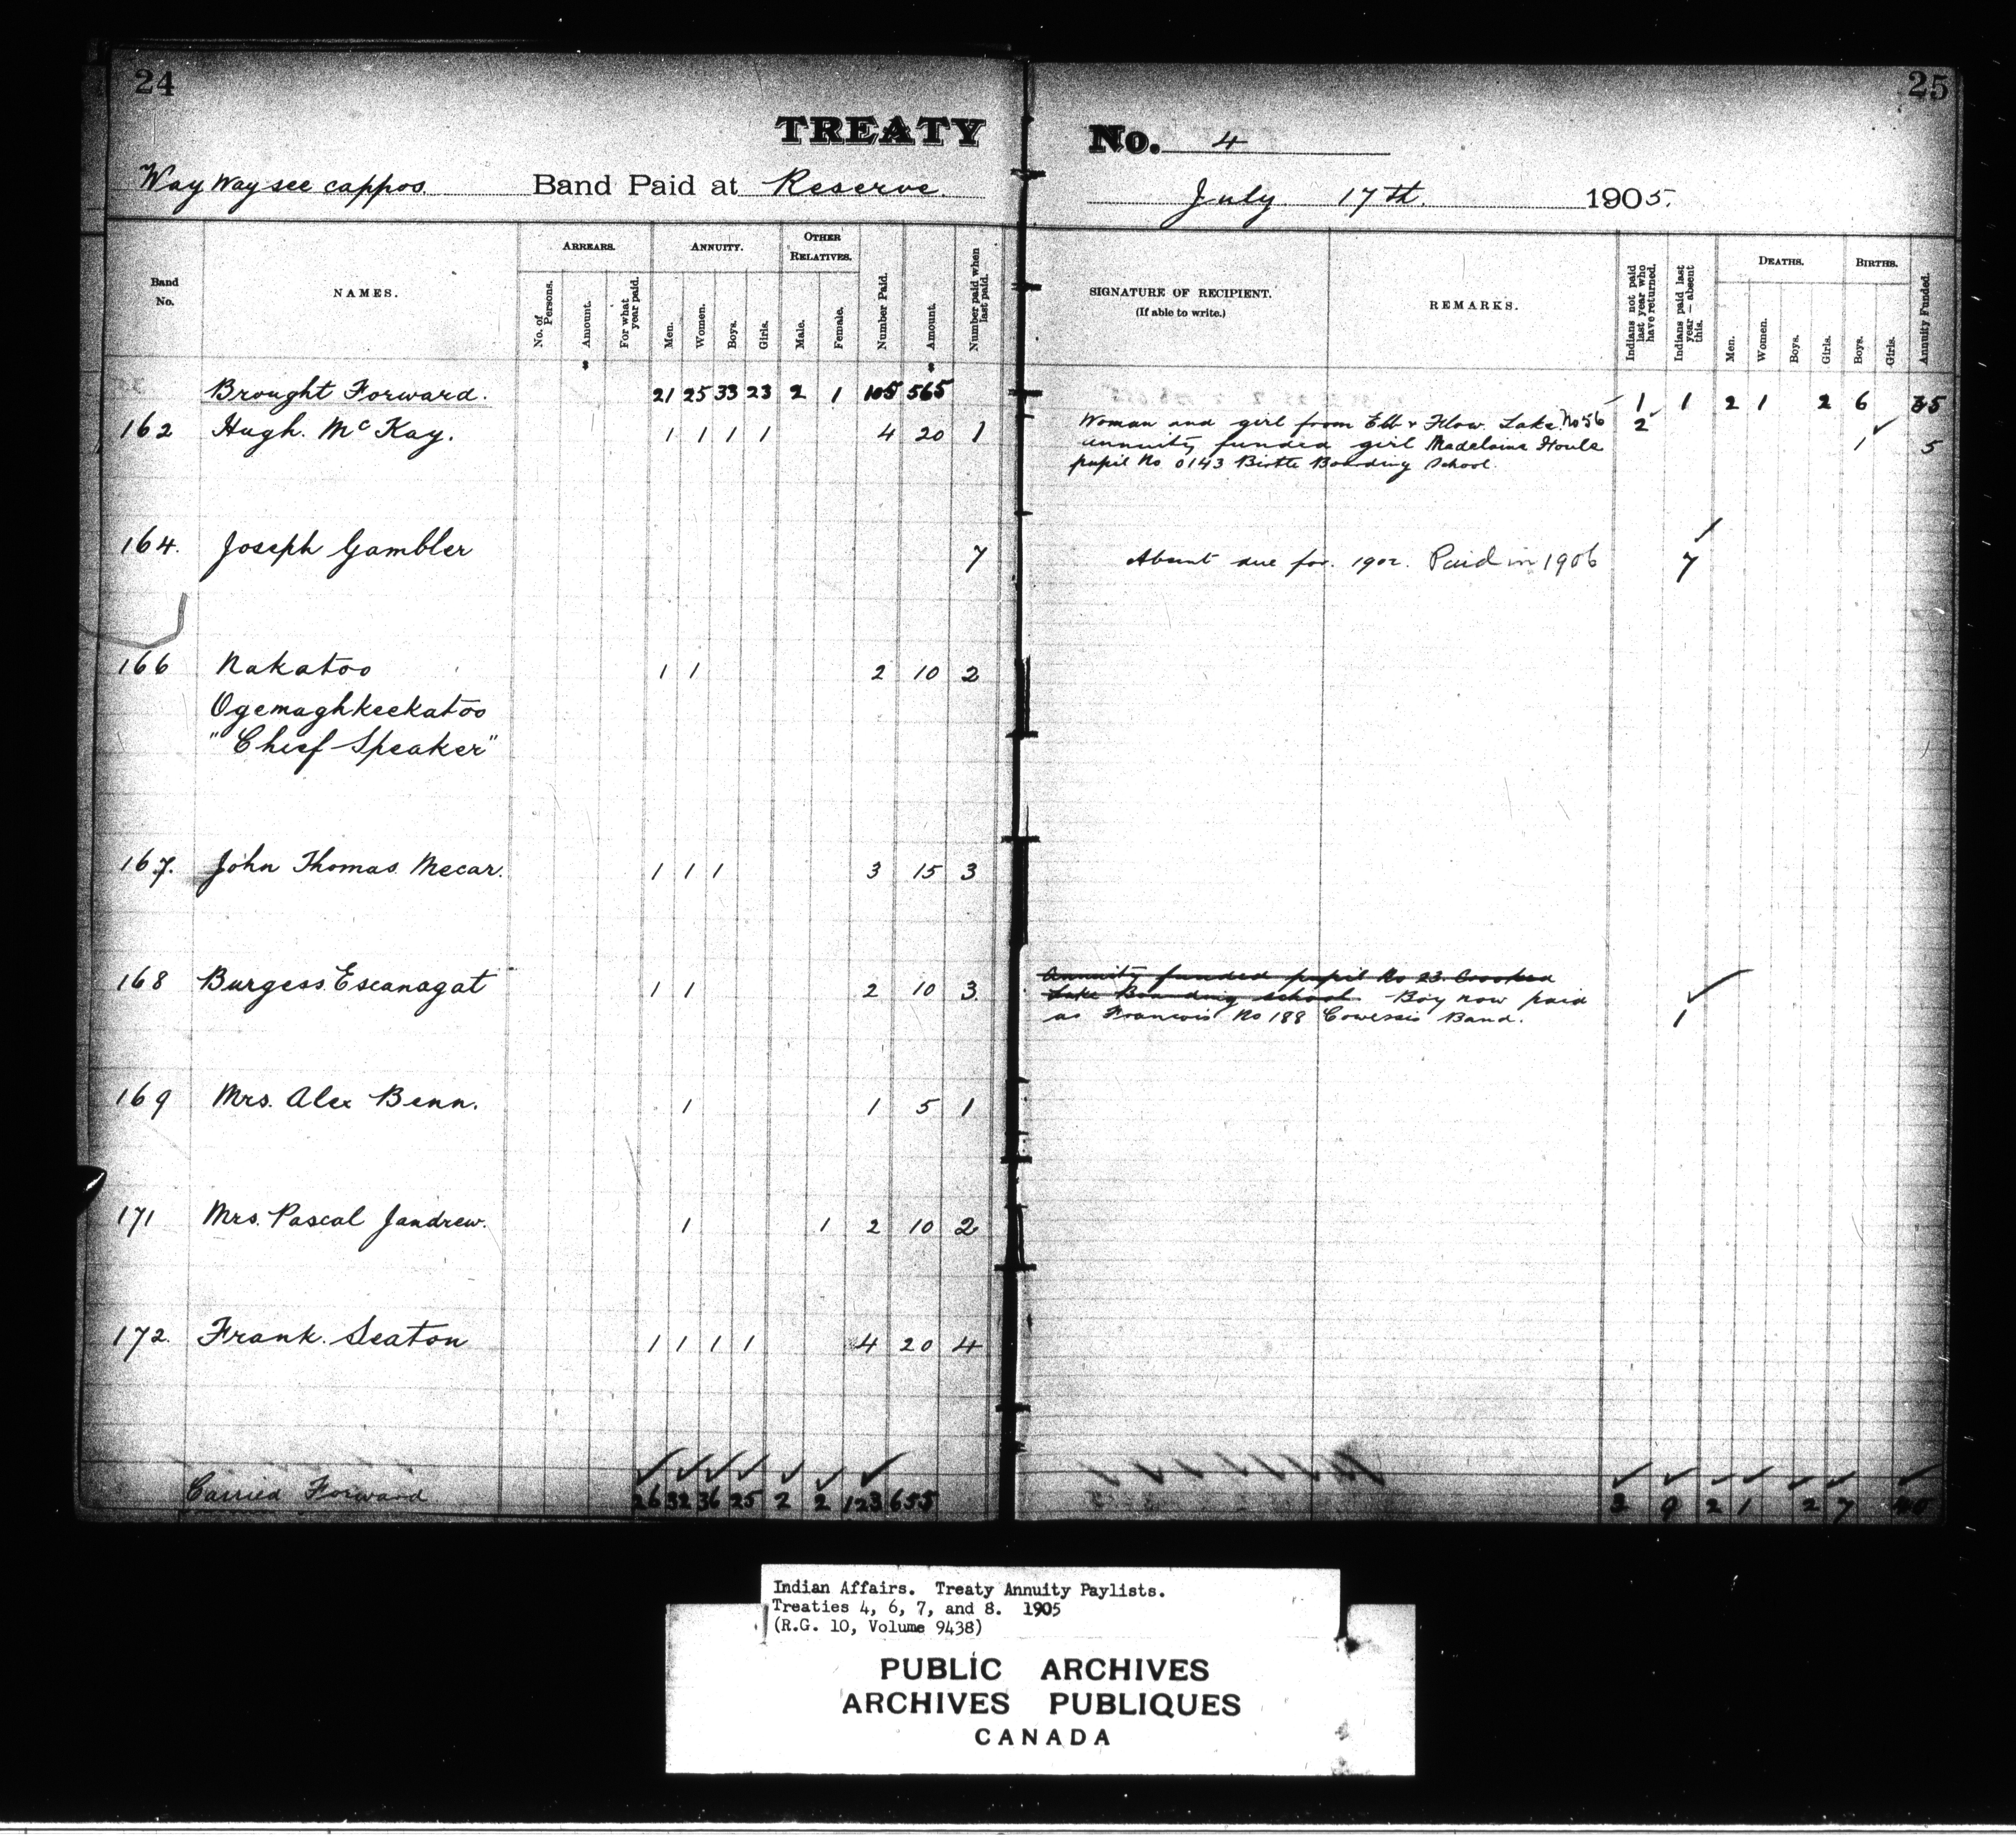 24
25
TREATY No. 4
Way way see cappos. Band Paid at Reserve. July 17th. 1905.
Band No.
NAMES.
ARREARS.
No. of Persons.
Amount.
For what year paid.
ANNUITY.
Men.
Women.
Boys.
Girls.
OTHER RELATIVES.
Male.
Female.
Number Paid.
Amount.
Number paid when last paid.
SIGNATURE OF RECIPIENT.
(If able to write.)
REMARKS.
Indians not paid last year who have returned.
Indians paid last year — absent this.
DEATHS.
Men.
Women.
Boys.
Girls.
BIRTHS.
Boys.
Girls.
Annuity Funded.
$ $
Brought Forward. 21 25 33 23 2 1 105 565 1 1 2 1 2 6 35
162 Hugh. McKay. 1 1 1 1 4 20 1 Woman and girl from Ebb & Flow Lake No 56 2
annuity funded girl Madelaine Houle 1 5
pupil No 0143 Birtle Boarding School.
164. Joseph Gambler 7 Absent due for. 1902. Paid in 1906 7
166 Nakatoo 1 1 2 10 2
Ogemaghkeekatoo
"Chief Speaker"
167. John Thomas Mecar. 1 1 1 3 15 3
168 Burgess Escanagat 1 1 2 10 3 Annuity funded pupil No 23. Crooked
Lake Boarding School. Boy now paid
as Francois No 188 Cowessis Band. 1
169 Mrs. Alex Benn. 1 1 5 1
171 Mrs. Pascal Jandrew. 1 1 2 10 2
172. Frank. Seaton 1 1 1 1 4 20 4
Carried Forward 26 32 36 25 2 2 123 655 3 9 2 1 2 7 40
Indian Affairs. Treaty Annuity Paylists.
Treaties 4, 6, 7, and 8. 1905
(R.G. 10, Volume 9438)
PUBLIC ARCHIVES
ARCHIVES PUBLIQUES
CANADA